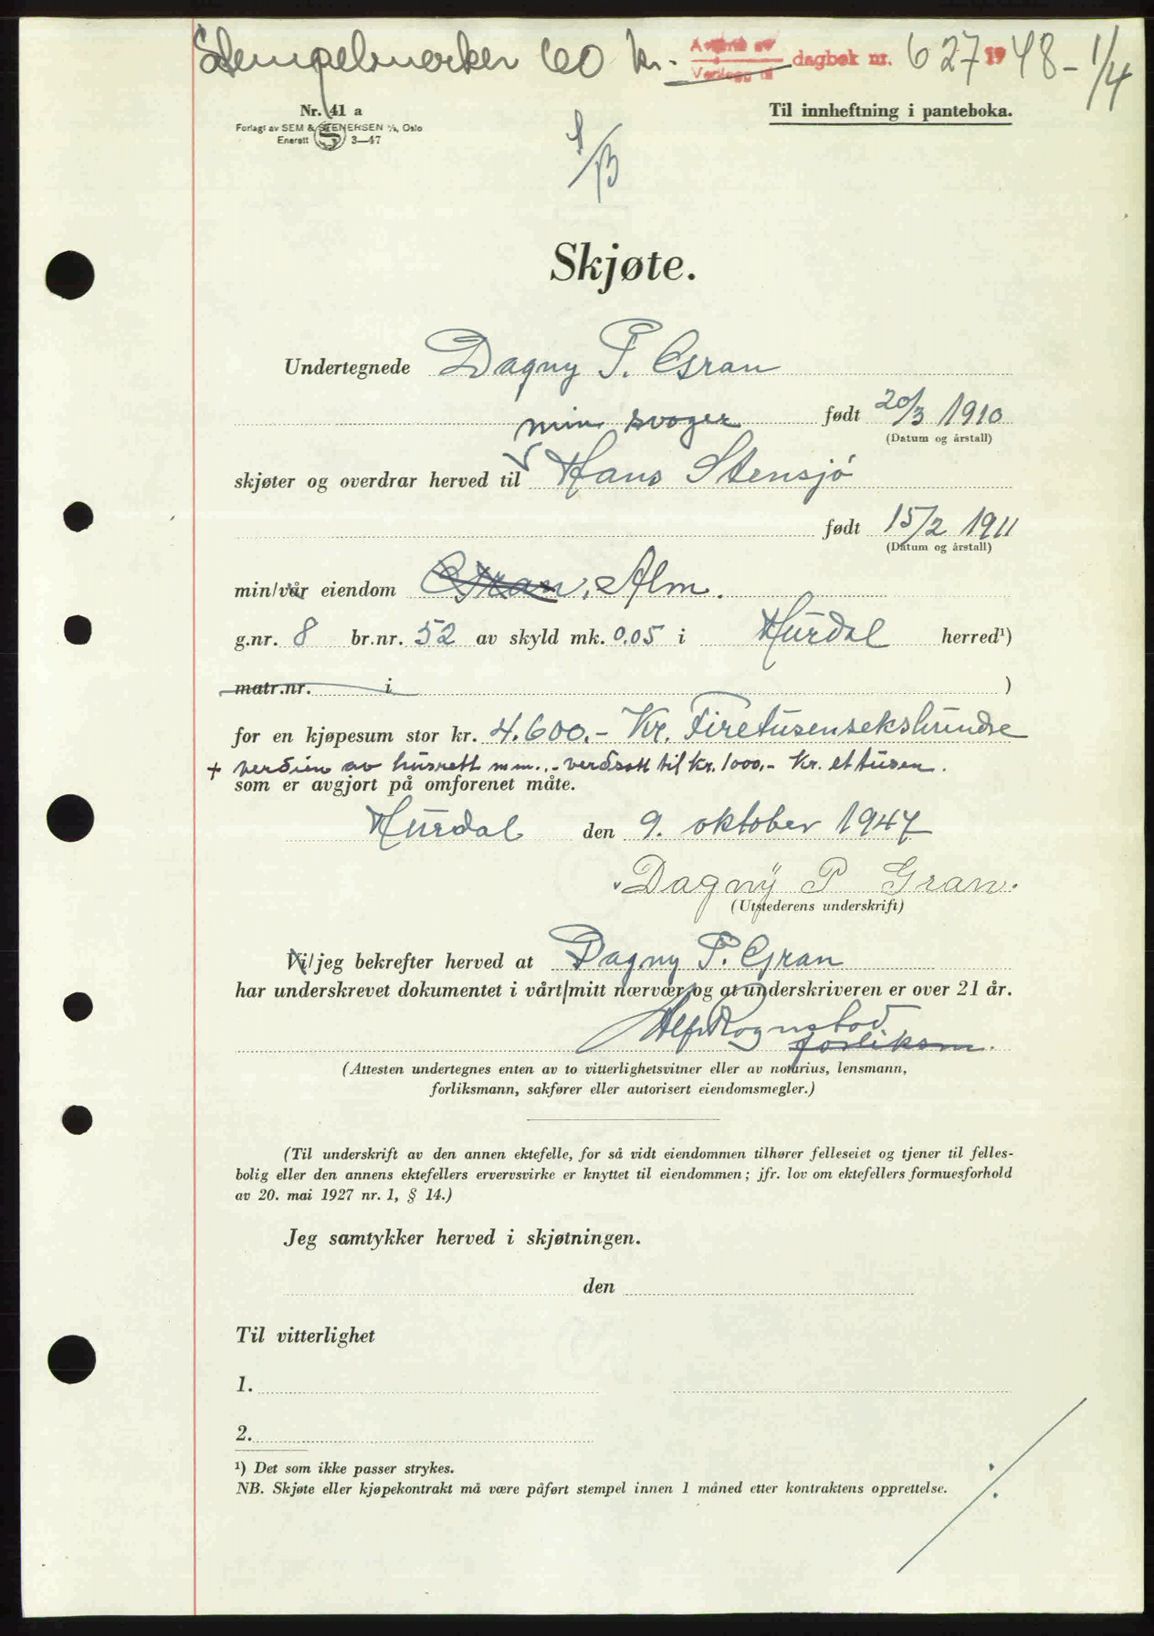 Stempelmerker 60 kr. - dagbok nr. 627 19 48 - 1/4
Nr. 41 a
Til innheftning i panteboka.
Forlagt av SEM & STENERSEN A/S, Oslo
Enerett S 3—47
Skjøte.
Undertegnede Dagny P. Gran
født 20/3 1910
(Datum og årstall)
min svoger
skjøter og overdrar herved til Hans Stensjö
født 15/2 1911
(Datum og årstall)
min/vår eiendom Gran, Alm.
g.nr. 8 br.nr. 52 av skyld mk. 0.05 i Hurdal herred¹)
matr.nr. i )
for en kjøpesum stor kr. 4.600.- Kr. Firetusensekshundre
+ verdien av husrett m.m. - verdsatt til kr. 1000.- Kr. ettusen.
som er avgjort på omforenet måte.
Hurdal den 9. oktober 1947
Dagny P Gran.
(Utstederens underskrift)
Vi/jeg bekrefter herved at Dagny P. Gran
har underskrevet dokumentet i vårt/mitt nærvær og at underskriveren er over 21 år.
Alf Rognstad
forliksm.
(Attesten undertegnes enten av to vitterlighetsvitner eller av notarius, lensmann,
forliksmann, sakfører eller autorisert eiendomsmegler.)
(Til underskrift av den annen ektefelle, for så vidt eiendommen tilhører felleseiet og tjener til felles-
bolig eller den annens ektefellers ervervsvirke er knyttet til eiendommen; jfr. lov om ektefellers formuesforhold
av 20. mai 1927 nr. 1, § 14.)
Jeg samtykker herved i skjøtningen.
den
Til vitterlighet
1.
2.
¹) Det som ikke passer strykes.
NB. Skjøte eller kjøpekontrakt må være påført stempel innen 1 måned etter kontraktens opprettelse.